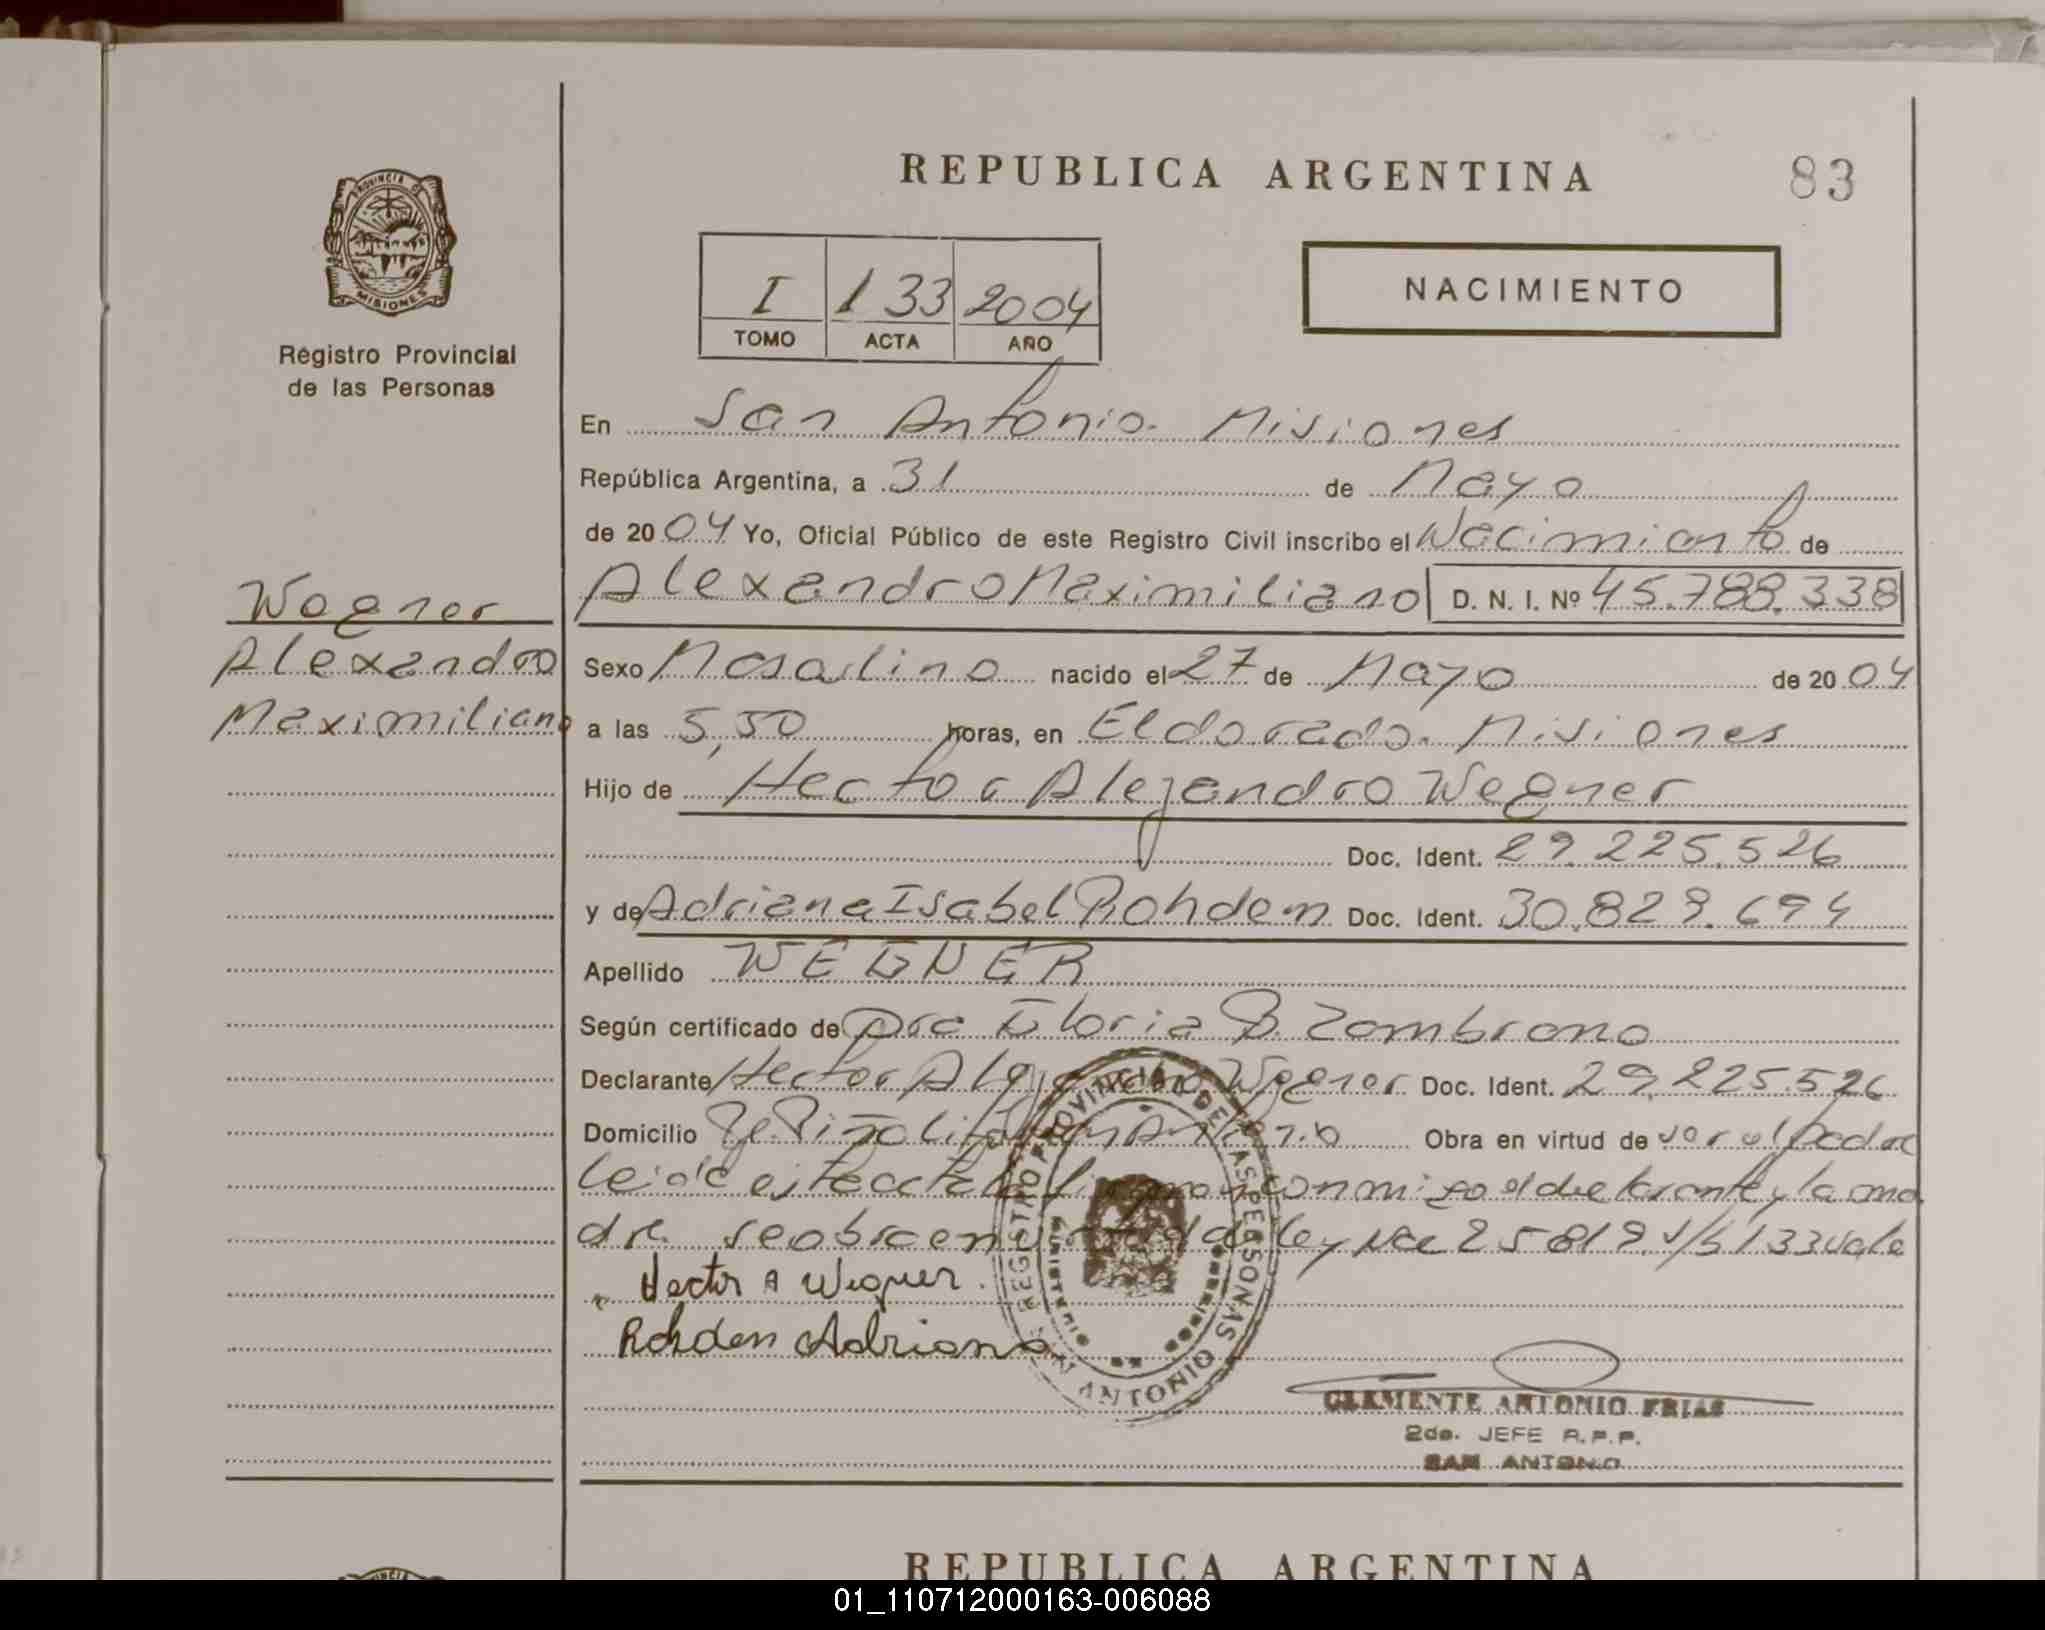 REPUBLICA ARGENTINA
83
PROVINCIA DE
MISIONES
Registro Provincial
de las Personas
I 133 2004
TOMO ACTA AÑO
NACIMIENTO
En San Antonio. Misiones
República Argentina, a 31 de Mayo
de 2004 Yo, Oficial Público de este Registro Civil inscribo el Nacimiento de
Alexandro Maximiliano D. N. I. Nº 45.788.338
Wegner
Alexandro
Maximiliano
Sexo Masculino nacido el 27 de Mayo de 2004
a las 5,50 horas, en Eldorado. Misiones
Hijo de Hector Alejandro Wegner
Doc. Ident. 29.225.526
y de Adriana Isabel Rohden Doc. Ident. 30.829.694
Apellido WEGNER
Según certificado de Dra Gloria B. Zambrano
Declarante Hector Alejandro Wegner Doc. Ident. 29.225.526
Domicilio San Antonio Obra en virtud de ser el padre
Leida este acta firman conmigo el declarante y la ma
dre se obra en virtud de ley Nac 25819. S/b 133 vale
Hector A Wegner.
Rohden Adriana
REGISTRO PROVINCIAL DE LAS PERSONAS
SAN ANTONIO
CLEMENTE ANTONIO FRIAS
2do. JEFE R.P.P.
SAN ANTONIO
REPUBLICA ARGENTINA
01_110712000163-006088